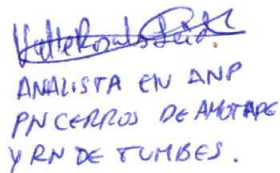 ANALISTA EN ANP
PN CERROS DE AMOTAPE
Y RN DE TUMBES.